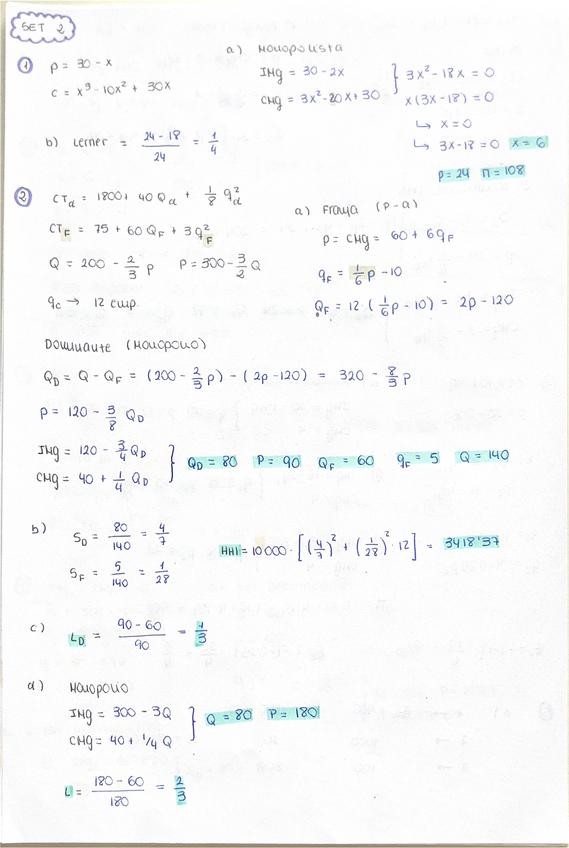 SET 2
① P = 30 - x
C = x³ - 10x² + 30x
a) Monopolista
IMg = 30 - 2x
CMg = 3x² - 20x + 30
} 3x² - 18x = 0
x(3x - 18) = 0
↳ x = 0
↳ 3x - 18 = 0 x = 6
P = 24 Π = 108
b) Lerner = (24 - 18)/24 = 1/4
② CTd = 1800 + 40Qd + 1/8 qd²
CTF = 75 + 60QF + 3qF²
Q = 200 - 2/3 P P = 300 - 3/2 Q
qc → 12 emp.
a) Franja (P-a)
P = CMg = 60 + 6qF
qF = 1/6 P - 10
QF = 12 · (1/6 P - 10) = 2P - 120
Dominante (Monopolio)
QD = Q - QF = (200 - 2/3 P) - (2P - 120) = 320 - 8/3 P
P = 120 - 3/8 QD
IMg = 120 - 3/4 QD
CMg = 40 + 1/4 QD
} QD = 80 P = 90 QF = 60 qF = 5 Q = 140
b) SD = 80/140 = 4/7
SF = 5/140 = 1/28
HHI = 10000 · [(4/7)² + (1/28)² · 12] = 3418'37
c) LD = (90 - 60)/90 = 1/3
d) Monopolio
IMg = 300 - 3Q
CMg = 40 + 1/4 Q
} Q = 80 P = 180
L = (180 - 60)/180 = 2/3